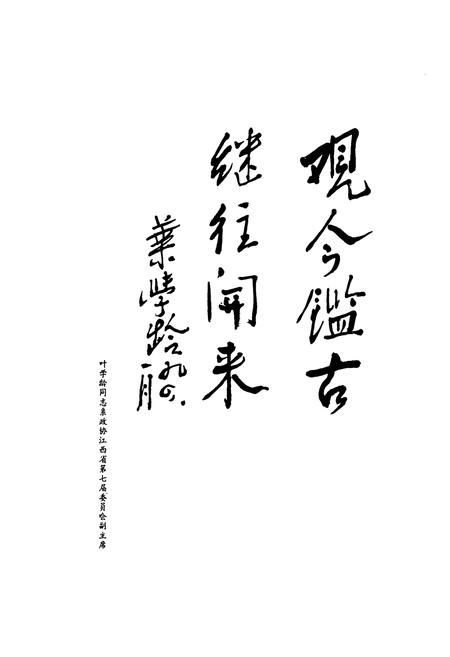 观今鑑古
继往開来
葉学龄 九四.
一月
叶学龄同志系政协江西省第七届委员会副主席